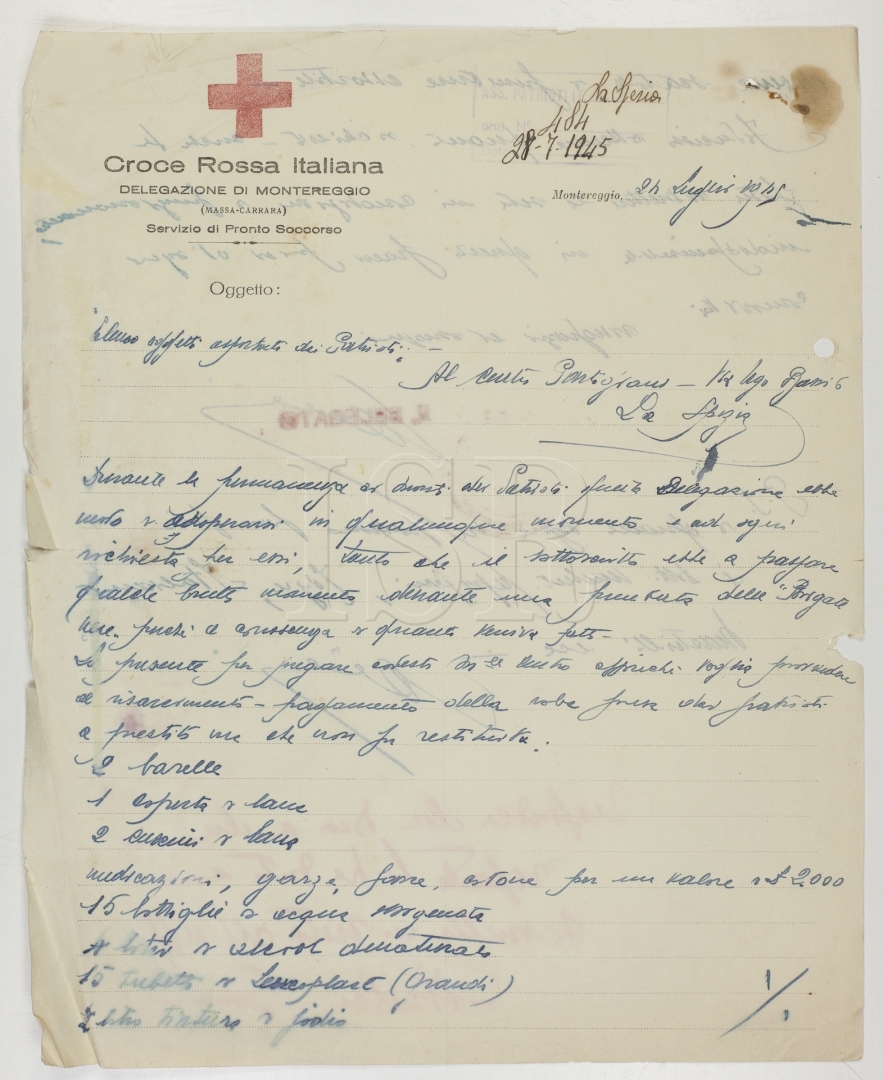 La Spezia
484
28-7-1945
Croce Rossa Italiana
DELEGAZIONE DI MONTEREGGIO
(MASSA-CARRARA)
Servizio di Pronto Soccorso
Montereggio, 24 Luglio 1945
Oggetto:
"Elenco oggetti asportati dai Patrioti". -
Al Centro Partigiano - Via Ugo Bassi 6
La Spezia
IL DELEGATO
Durante la permanenza dei Patrioti questa Delegazione ebbe
modo di adoperarsi in qualunque momento e ad ogni
richiesta per essi, tanto che il sottoscritto ebbe a passare
qualche brutto momento durante una puntata delle "Brigate
nere. perchè a conoscenza di quanto veniva fatto -
La presente per pregare codesto On/le Centro affinchè voglia provvedere
al risarcimento - pagamento della roba presa dai patrioti
a prestito ma che non fu restituita:
2 barelle
1 coperta di lana
2 cuscini di lana
medicazioni, garze, fasce, cotone per un valore di £ 2.000
15 bottiglie di acqua ossigenata
litri di alcool denaturato
15 tubetti di Leucoplast (Grandi)
litro tintura di jodio
1/
ISR